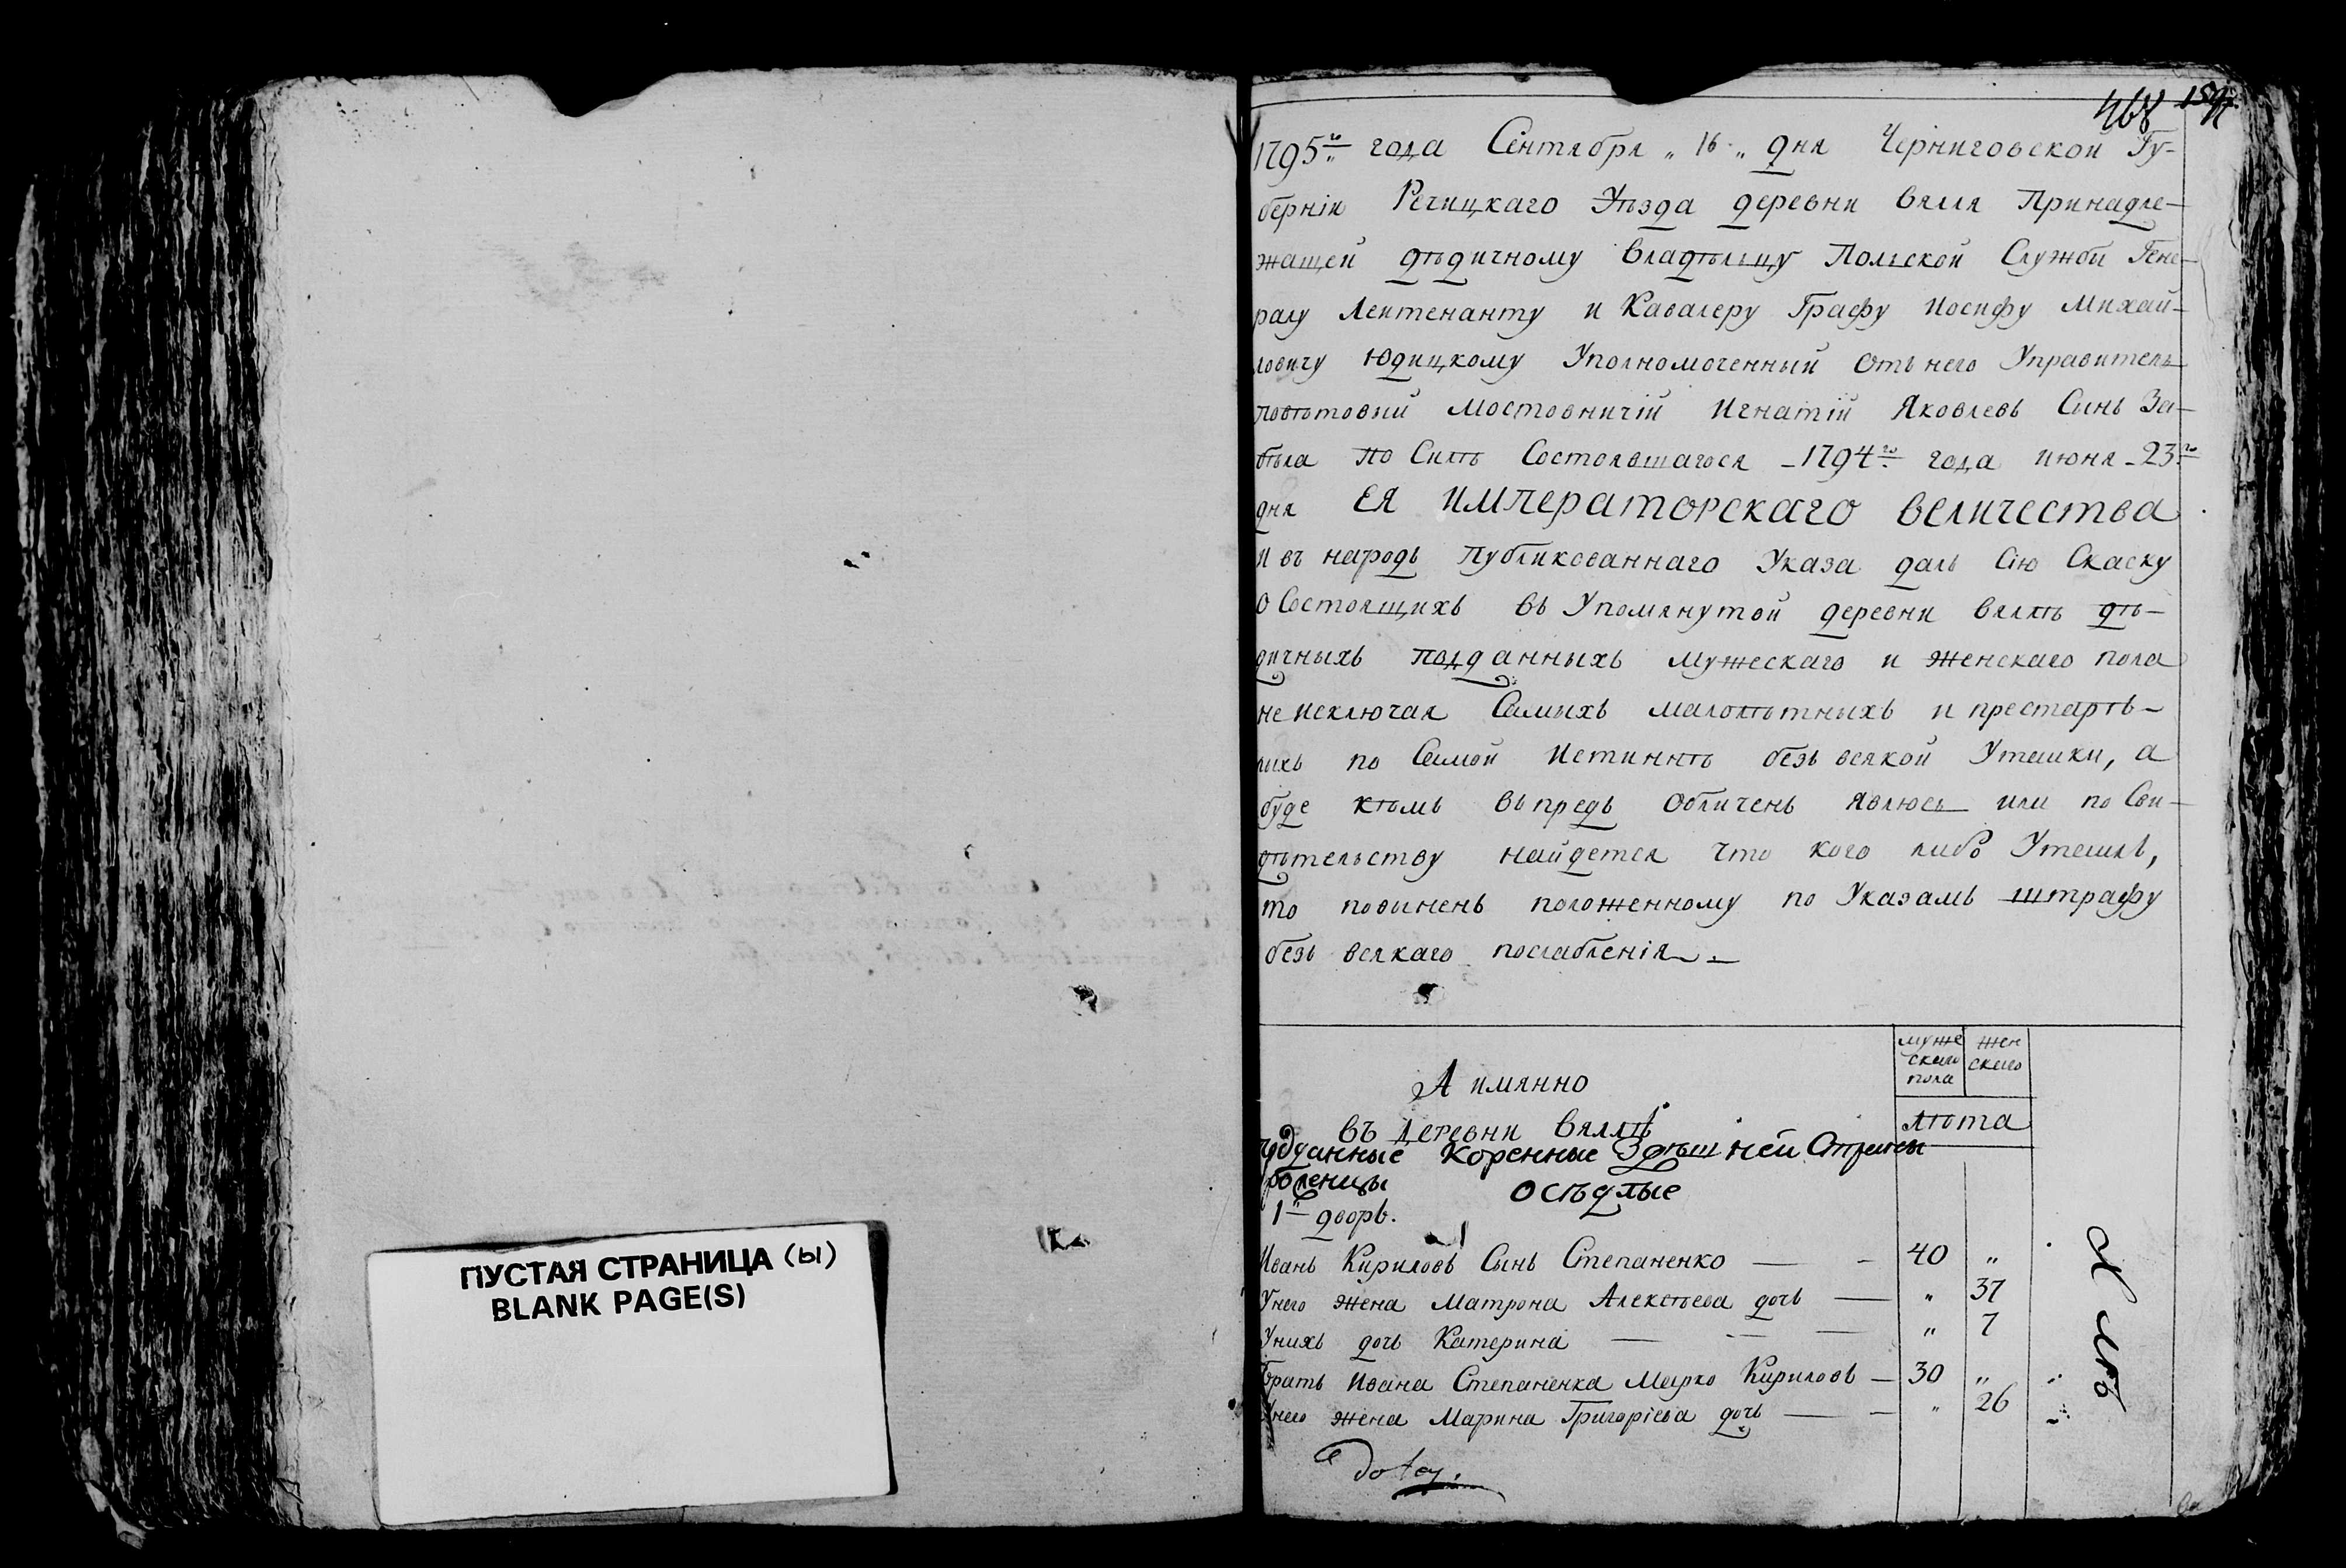 ПУСТАЯ СТРАНИЦА (ы)
BLANK PAGE(S)
468
1795го года Сентября „ 16 „ дня Черниговской Гу-
берніи Речицкаго Уѣзда деревни Вялля Принадле-
жащей дѣдичному владѣльцу Польской Служби Гене-
ралу Леитенанту и Кавалеру Графу Иосифу Михай-
ловичу Юдицкому Уполномоченный отъ него Управитель
повѣтовий Мостовничій Игнатій Яковлевъ Синъ За-
бѣла по Силѣ Состоявшагося - 1794го года июня - 23го
дня ЕЯ ИМПЕРАТОРСКАГО ВЕЛИЧЕСТВА
И въ народъ Публикованнаго Указа далъ Сію Скаску
О Состоящихъ въ Упомянутой деревни Вяллѣ дѣ-
дичныхъ подданныхъ мужескаго и женскаго пола
не исключая Самихъ малолѣтныхъ и престарѣ-
лихъ по Самой Истиннѣ безъ всякой Утайки, а
буде кѣмъ въпредь Обличенъ явлюсь или по Сви-
дѣтельству найдется что кого либо Утаилъ,
то повиненъ положенному по Указамъ штрафу
безъ всякаго послабленія
муже
скаго
пола
жен
скаго
лѣта
А имянно
въ деревни Вяллѣ
подданные Коренные Здѣшней Страны
осѣдлые
1й дворъ.
Иванъ Кириловъ Синъ Степаненко — - 40 „
Унего жена Матрона Алексѣева дочь — „ 37
Унихъ дочь Катерина — — — „ 7
Братъ Ивана Степаненка Марко Кириловъ — 30 „
Унего жена Марина Григоріева дочь — - „ 26